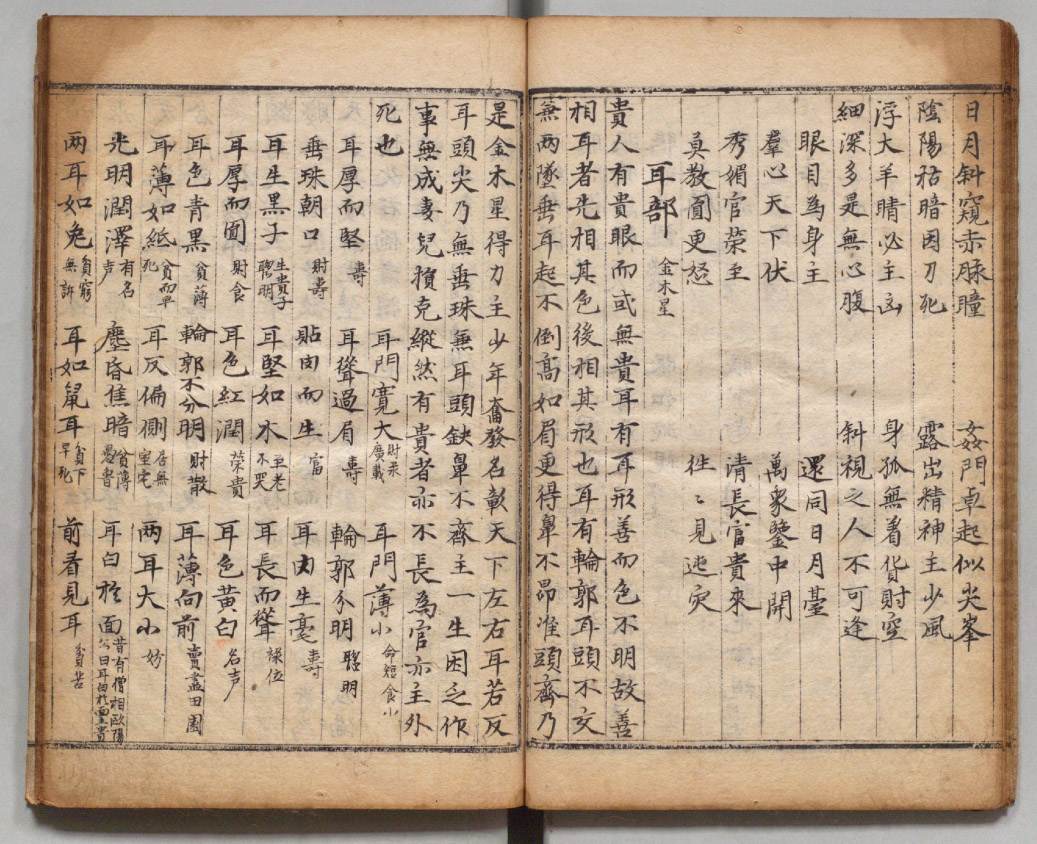 日月斜窺赤脉瞳　姦門卓起似尖峯
陰陽枯暗因刀死　露出精神主少風
浮大羊睛必主凶　身孤無着貨財空
細深多是無心腹　斜視之人不可逢
眼目為身主　還同日月臺
羣心天下伏　萬象鑒中開
秀媚官榮至　清長富貴來
莫教圎更怒　徃〻見迍灾
耳部 金木星
貴人有貴眼而或無貴耳有耳形善而色不明故善
相耳者先相其色後相其形也耳有輪郭耳頭不交
兼兩墜垂耳起不倒高如眉更得㫁不昂唯頭齊乃
是金木星得力主少年奮發名彰天下左右耳若反
耳頭尖乃無垂珠無耳頭缺㫁不齊主一生困乏作
事無成妻兒損克縱然有貴者亦不長為官亦主外
死也　耳門寛大 財祿廣載　耳門薄小 命短食小
耳厚而堅 壽　耳聳過眉 壽　輪郭分明 聰明
垂珠朝口 財壽　貼肉而生 富　耳內生毫 壽
耳生黑子 生貴子聰明　耳堅如木 至老不哭　耳長而聳 祿位
耳厚而圎 財食　耳色紅潤 榮貴　耳色黃白 名声
耳色青黑 貧薄　輪郭不分明 財散　耳薄向前 賣盡田園
耳薄如紙 貧而早死　耳反偏側 居無室宅　兩耳大小 妨
光明潤澤 有名声　塵昏焦暗 貧薄愚魯　耳白於面 昔有僧相歐陽公曰耳白於面主貴
兩耳如兎 貧窮無訴　耳如鼠耳 貧下早死　前看見耳 貧苦